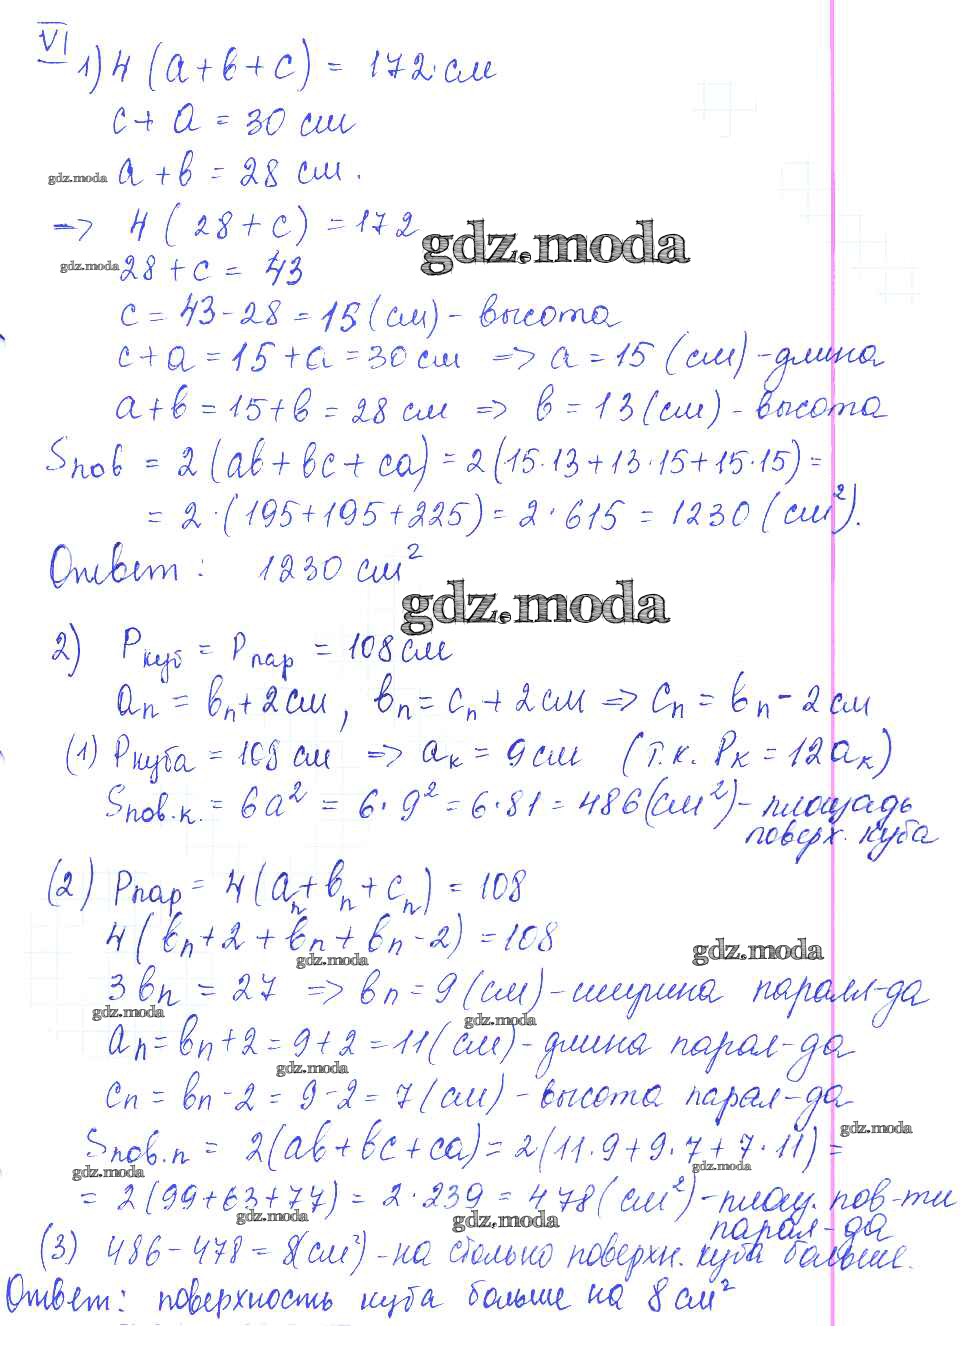 VI
1) 4 (a + b + c) = 172 см
c + a = 30 см
gdz.moda a + b = 28 см.
=> 4 ( 28 + c ) = 172
gdz.moda
gdz.moda 28 + c = 43
c = 43 - 28 = 15 (см) - высота
c + a = 15 + a = 30 см => a = 15 (см) - длина
a + b = 15 + b = 28 см => b = 13 (см) - высота
Sпов = 2 (ab + bc + ca) = 2 (15·13 + 13·15 + 15·15) =
= 2 · (195 + 195 + 225) = 2 · 615 = 1230 (см²).
Ответ: 1230 см²
gdz.moda
2) Pкуб = Pпар = 108 см
aп = bп + 2 см, bп = cп + 2 см => cп = bп - 2 см
(1) Pкуба = 108 см => aк = 9 см (т.к. Pк = 12aк)
Sпов.к. = 6a² = 6 · 9² = 6 · 81 = 486 (см²) - площадь
поверх. куба
(2) Pпар = 4 (aп + bп + cп) = 108
4 (bп + 2 + bп + bп - 2) = 108
gdz.moda gdz.moda
3 bп = 27 => bп = 9 (см) - ширина паралл-да
gdz.moda gdz.moda
aп = bп + 2 = 9 + 2 = 11 (см) - длина парал-да
gdz.moda
cп = bп - 2 = 9 - 2 = 7 (см) - высота парал-да
gdz.moda
Sпов.п = 2 (ab + bc + ca) = 2 (11·9 + 9·7 + 7·11) =
gdz.moda gdz.moda
= 2 (99 + 63 + 77) = 2 · 239 = 478 (см²) - площ. пов-ти
gdz.moda gdz.moda парал-да
(3) 486 - 478 = 8 (см²) - на столько поверхн. куба больше.
Ответ: поверхность куба больше на 8 см²